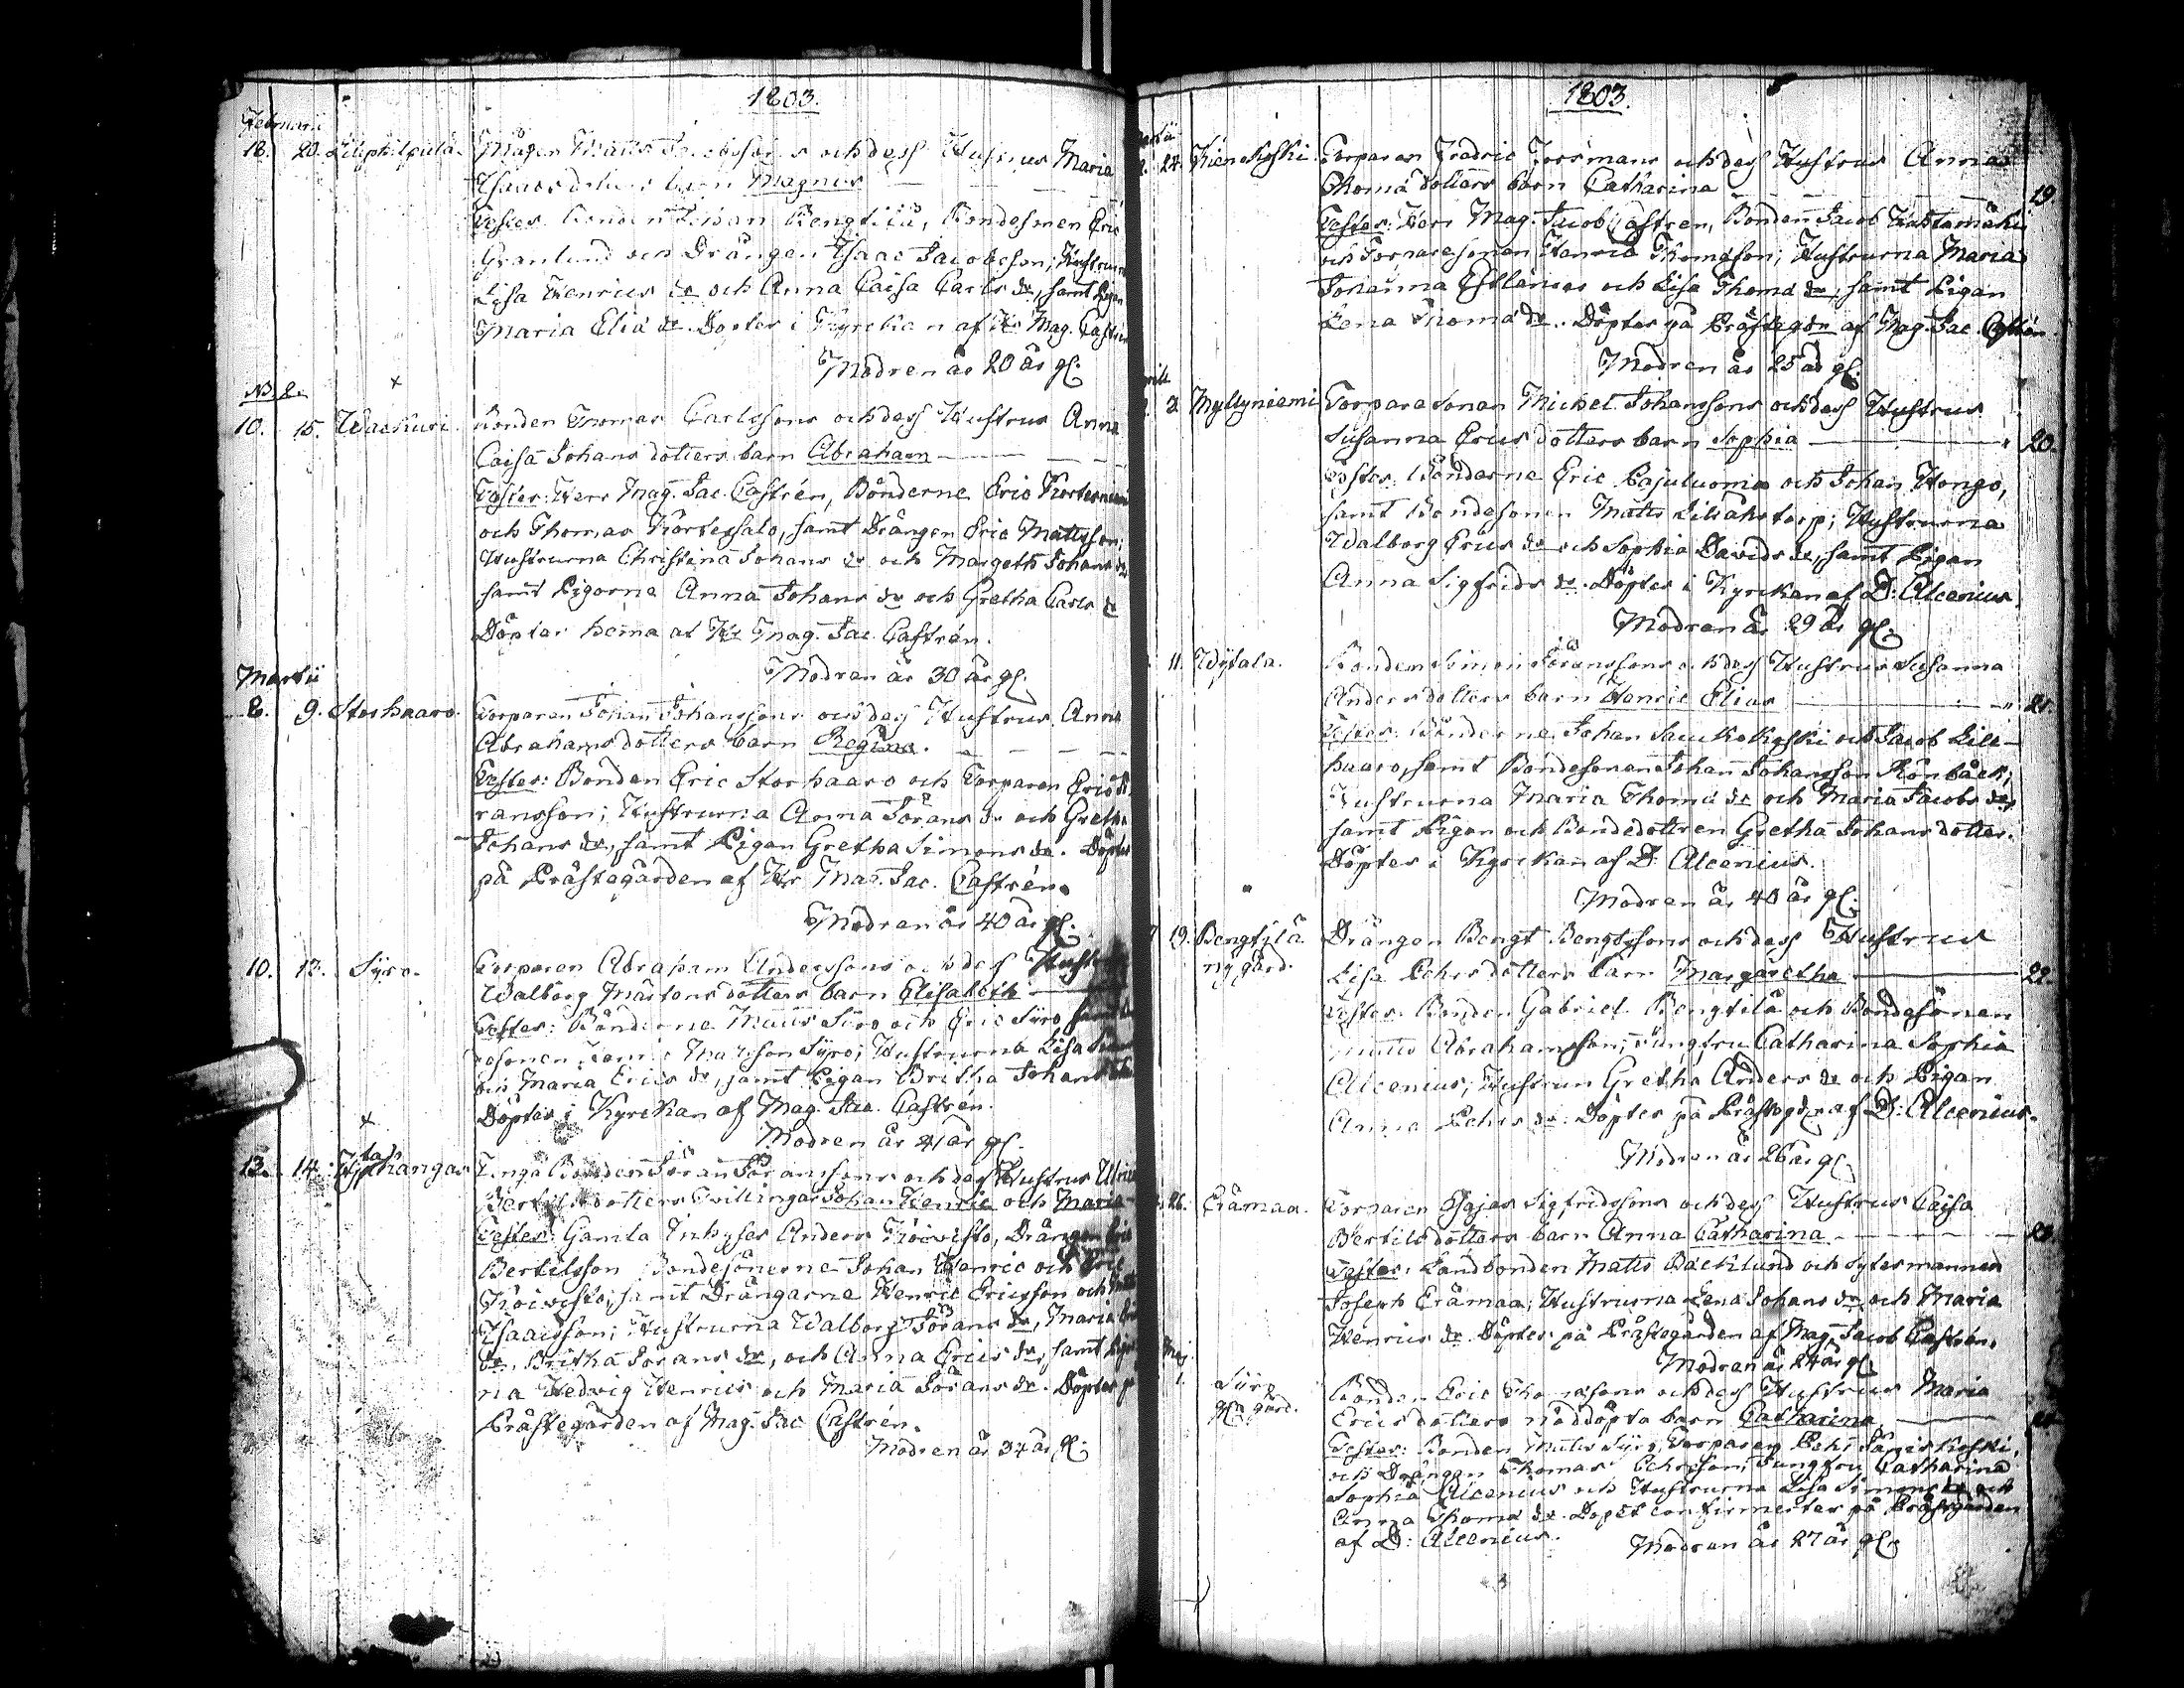 1803.
Februarii
18. 20. Liliphilpula. Mågen Matts Jacobssons och dess Hustrus Maria
Isaacs dotters barn Magnus
Testes: Bonden Johan Bengtilä, Bondesonen Eric
Granlund och Drängen Isaac Jacobsson; Hustrurna
Lisa Henrics dr och Anna Caisa Carls dr, samt Pigan
Maria Eliæ dr. Döptes i Kyrckan af Hr Mag. Castrén
Modren är 20 år gl.
NB. 2. x
10. 15. Wackuri. Bonden Thomas Carlssons och dess Hustrus Anna
Caisa Johans dotters barn Abraham
Testes: Herr Mag. Jac. Castrén, Bönderne Eric Kortesniemi
och Thomas Kortessalo, samt Drängen Eric Mattsson;
Hustrurna Christina Johans dr och Margeth Johans dr
samt Pigorne Anna Johans dr och Gretha Carls dr
Döptes hema af Hr Mag. Jac. Castrén.
Modren är 30 år gl.
Martii
8. 9. Storhaaro. Torparen Johan Johanssons och dess Hustrus Anna
Abrahams dotters barn Regina.
Testes: Bonden Eric Storhaaro och Torparen Eric Jö
ransson; Hustrurna Anna Jörans dr och Gretha
Johans dr, samt Pigan Gretha Simons dr. Döptes
på Prästegården af Hr Mag. Jac. Castrén.
Modren är 40 år gl.
10. 13. Syro. Torparen Abraham Anderssons och dess Hustrus
Walborg Mårtens dotters barn Elisabeth
Testes: Bönderne Matts Syro och Eric Syro samt
sonen Henric Mattsson Syro; Hustrurna Lisa
och Maria Erics dr, samt Pigan Britha Johans
Döptes i Kyrckan af Mag. Jac. Castrén.
Modren är 41 år gl.
x
13. 14. Ypä kangas Unga Bonden Jöran Jöranssons och dess Hustrus Ulrica
Bertils dotters Tvillingar Johan Henric och Maria
Testes: Gamla Inhyses Anders Koivisto, Drängen Eric
Bertilsson Bondesönerne Johan Henric och Eric
Koivisto, samt Drängarne Henric Ericsson och Matts
Isaacsson; Hustrurna Walborg Jörans dr, Maria
dr, Britha Jörans dr, och Anna Erics dr, samt Pigor
na Hedvig Henrics och Maria Jörans dr. Döptes på
Prästegården af Mag. Jac Castrén.
Modren är 34 år gl.
1803.
24. Kienokoski. Torparen Fredric Forsmans och dess Hustrus Anna
Thomæ dotters barn Catharina 19
Testes: Herr Mag. Jacob Castren, Bonden Jacob Kastamäki
och Torparesonen Henric Thomasson; Hustrurna Maria
Johanna Estlander och Lisa Thomæ dr, samt Pigan
Lena Thomæ dr. Döptes på Prästegdn af Mag. Jac. Castrén
Modren är 25 år gl.
2 Myllyniemi Torparesonen Michel Johanssons och dess Hustrus
Susanna Erics dotters barn Sophia 20.
Testes: Bönderne Eric Pajuluoma och Johan Hongo,
samt Bondesonen Matts Liliåhstorp; Hustrurna
Walborg Erics dr och Sophia Davids dr, samt Pigan
Anna Sigfrids dr. Döptes i Kyrckan af D: Alcenius.
Modren är 29 år gl.
11. Wytala. Bonden Simon Jöranssons och dess Hustrus Susanna
Anders dotters barn Henric Elias 21.
Testes: Bönderne Johan Saukkokoski och Jacob Lill-
haaro, samt Bondesonen Johan Johansson Rönbäck;
Hustrurna Maria Thomæ dr och Maria Jacobs dr,
samt Pigan och Bondedottren Gretha Johans dotter.
Döptes i Kyrckan af D. Alcenius.
Modren är 40 år gl.
19. Bengtilä Drängen Bengt Bengtssons och dess Hustrus
ny gård. Lisa Pehrs dotters barn Margaretha 22.
Testes: Bonden Gabriel Bengtilä och Bondesönen
Matts Abrahamsson; Jungfru Catharina Sophia
Alcenius, Hustrun Gretha Anders dr och Pigan
Anna Pehrs dr. Döptes på Prästegdn af D: Alcenius.
Modren är 26 år gl.
26. Erämaa. Torparen Esajas Sigfridssons och dess Hustrus Caisa
Bertils dotters barn Anna Catharina 23.
Testes: Landbonden Matts Bäcklund och Sytesmannen
Joseph Erämaa; Hustrurna Lena Johans dr och Maria
Henrics dr. Döptes på Prästegården af Mag. Jacob Castrén.
Modren är 24 år gl.
Maj
1. Syro Bonden Eric Thomassons och dess Hustrus Maria
gl. gård. Erics dotters nöddöpta barn Catharina
Testes: Bonden Matts Syro, Torparen Pehr Jänis koski,
och Drängen Thomas Pehrsson; Jungfru Catharina
Sophia Alcenius och Hustrurna Lisa Simons dr och
Anna Thomæ dr. Dopet confirmertes på Prästgården
af D: Alcenius. Modren är 27 år gl.